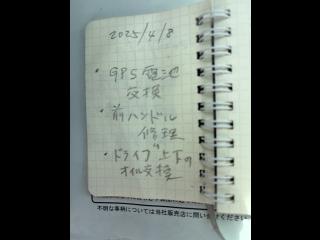 2025/4/8
・GPS電池
交換
・前ハンドル
修理
・ドライブ上下の
オイル交換
不明な事柄については当社販売店に問い合わせください